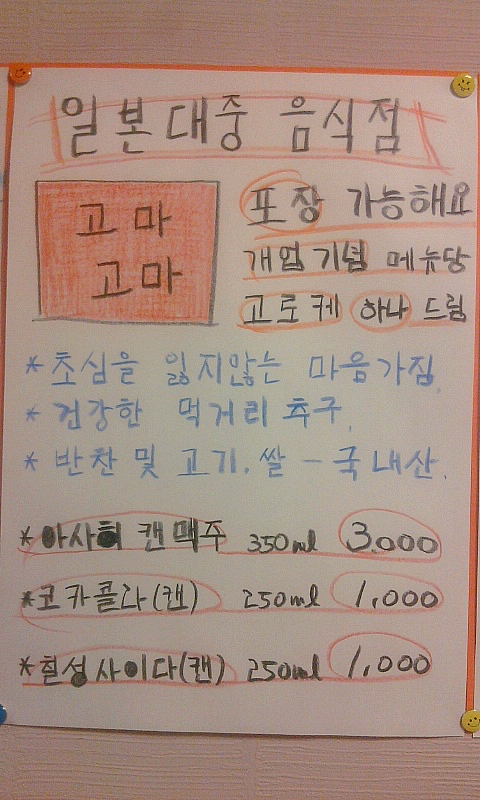 일본대중 음식점
고마
고마
포장 가능해요
개업기념 메뉴당
고로케 하나 드림
* 초심을 잃지않는 마음가짐.
* 건강한 먹거리 추구.
* 반찬 및 고기. 쌀 - 국내산.
* 아사히 캔맥주 350ml 3.000
* 코카콜라(캔) 250ml 1,000
* 칠성사이다(캔) 250ml 1,000